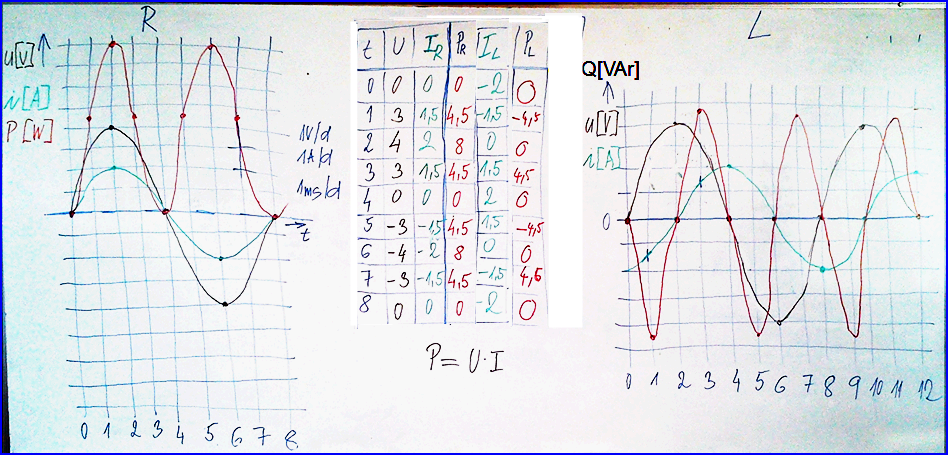 R
u[V]
i[A]
P[W]
1V/d
1A/d
1ms/d
t
0 1 2 3 4 5 6 7 8
t U I_R P_R I_L P_L
0 0 0 0 -2 0
1 3 1,5 4,5 -1,5 -4,5
2 4 2 8 0 0
3 3 1,5 4,5 1,5 4,5
4 0 0 0 2 0
5 -3 -1,5 4,5 1,5 -4,5
6 -4 -2 8 0 0
7 -3 -1,5 4,5 -1,5 4,5
8 0 0 0 -2 0
P = U·I
L
Q[VAr]
u[V]
i[A]
0
0 1 2 3 4 5 6 7 8 9 10 11 12